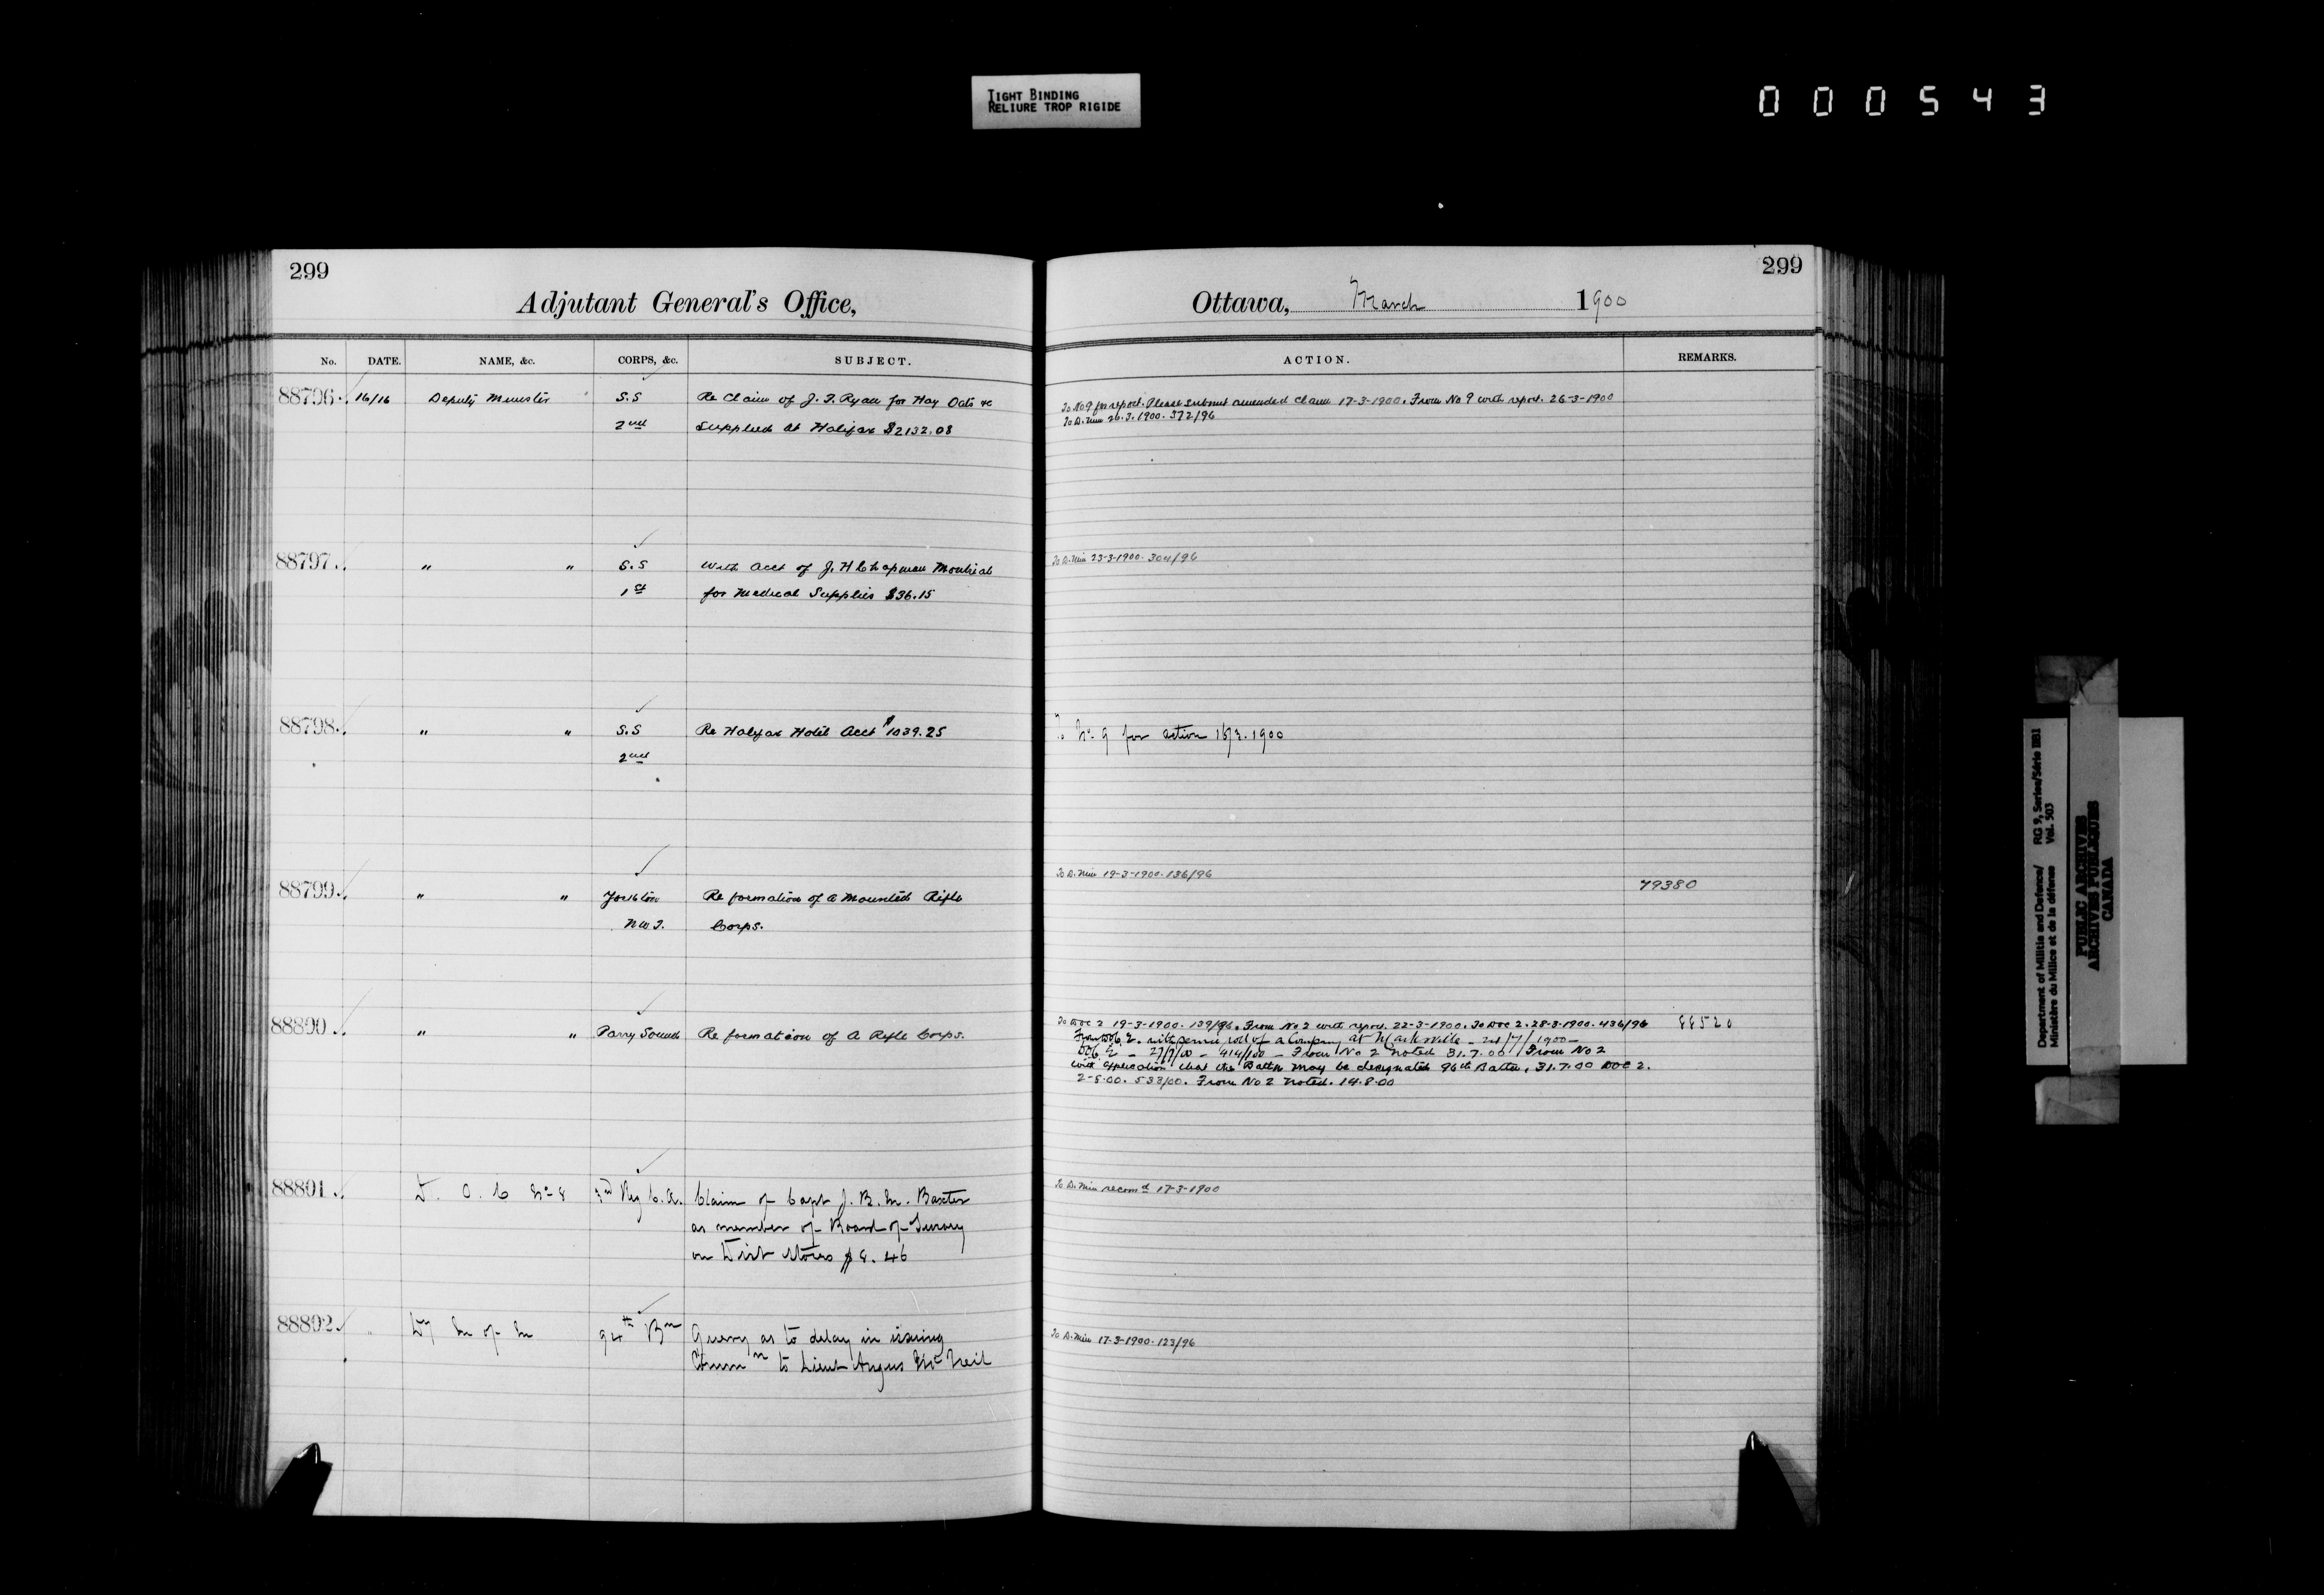 TIGHT BINDING
RELIURE TROP RIGIDE
000543
299
Adjutant General's Office,
No. DATE. NAME, &c. CORPS, &c. SUBJECT.
88796. 16/16 Deputy Minister S.S Re Claim of J. F. Ryan for Hay Oats &c
2nd Supplied at Halifax $2132.08
88797. " " S.S With acct of J. H Chapman Montreal
1st for Medical Supplies $36.15
88798. " " S.S Re Halifax Hotel Acct $1039.25
2nd
88799. " " Yorkton Re formation of a Mounted Rifle
N.W.T. Corps.
88800. " " Parry Sound Re formation of a Rifle Corps.
88801. D. O. C No 8 3rd Reg C.A. Claim of Capt J. B. M. Baxter
as member of Board of Survey
on Dist Stores $8.46
88802. " Dy M of M 94th Bn Query as to delay in issuing
Commn to Lieut Angus McNeil
299
Ottawa, March 1900
ACTION. REMARKS.
To No 9 for report. Please submit amended claim 17-3-1900. From No 9 with report. 26-3-1900
To D. Min 26.3.1900. 372/96
To D. Min 23-3-1900. 304/96
To No 9 for action 16/3.1900
To D. Min 19-3-1900. 136/96
79380
To DOC 2 19-3-1900. 139/96. From No 2 with report. 22-3-1900. To DOC 2. 28-3-1900. 436/96 88520
with service roll of a Company at Marksville 1900
27/7/00 - 414/00 - From No 2 noted 31.7.00 From No 2
with application that the Battn may be designated 96th Battn. 31.7.00 DOC 2.
2-8-00. 533/00. From No 2 noted. 14.8.00
To D. Min recomd 17-3-1900
To D. Min 17-3-1900. 123/96
Department of Militia and Defence/
Ministère du Milice et de la défense
RG 9, Series/Série IIB1
Vol. 503
PUBLIC ARCHIVES
ARCHIVES PUBLIQUES
CANADA